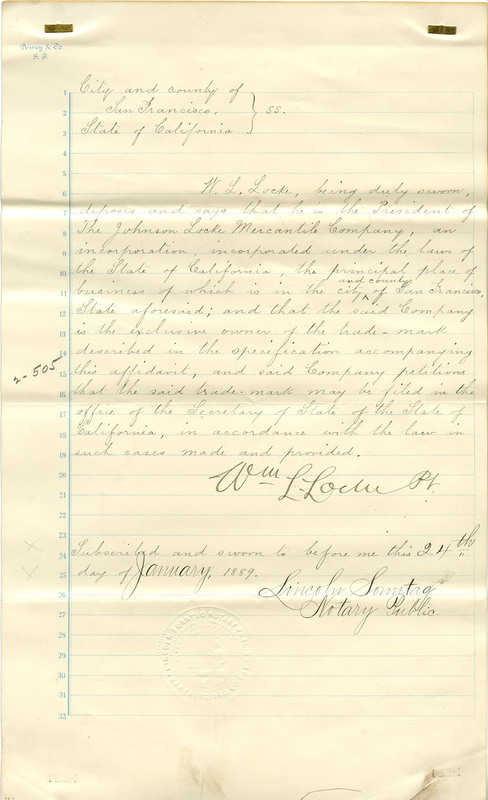 Dewey & Co.
S. F.
1 City and county of
2 San Francisco, } ss.
3 State of California
4
5
6 W. L. Locke, being duly sworn,
7 deposes and says that he is the President of
8 The Johnson Locke Mercantile Company, an
9 incorporation, incorporated under the laws of
10 the State of California, the principal place of
11 business of which is in the city and county of San Francisco,
12 State aforesaid; and that the said Company
13 is the exclusive owner of the trade-mark
14 described in the specification accompanying
15 this affidavit, and said Company petitions
16 that the said trade-mark may be filed in the
17 office of the Secretary of State of the State of
18 California, in accordance with the law in
19 such cases made and provided.-
20 Wm L. Locke Pt.
21
22
23
24 Subscribed and sworn to before me this 24th
25 day of January, 1889.
26 Lincoln Sonntag
27 Notary Public.
28
29
30
31
32
2-505
X
X